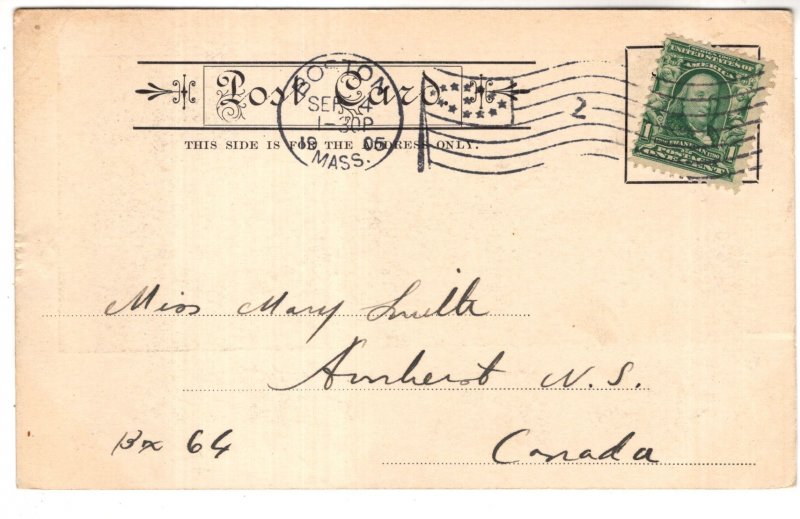 Post Card
THIS SIDE IS FOR THE ADDRESS ONLY.
BOSTON
SEP 4
1-30P
19 05
MASS.
2
UNITED STATES OF
AMERICA
1 1
ONE CENT
Miss Mary Smith
Amherst N.S.
Bx 64
Canada